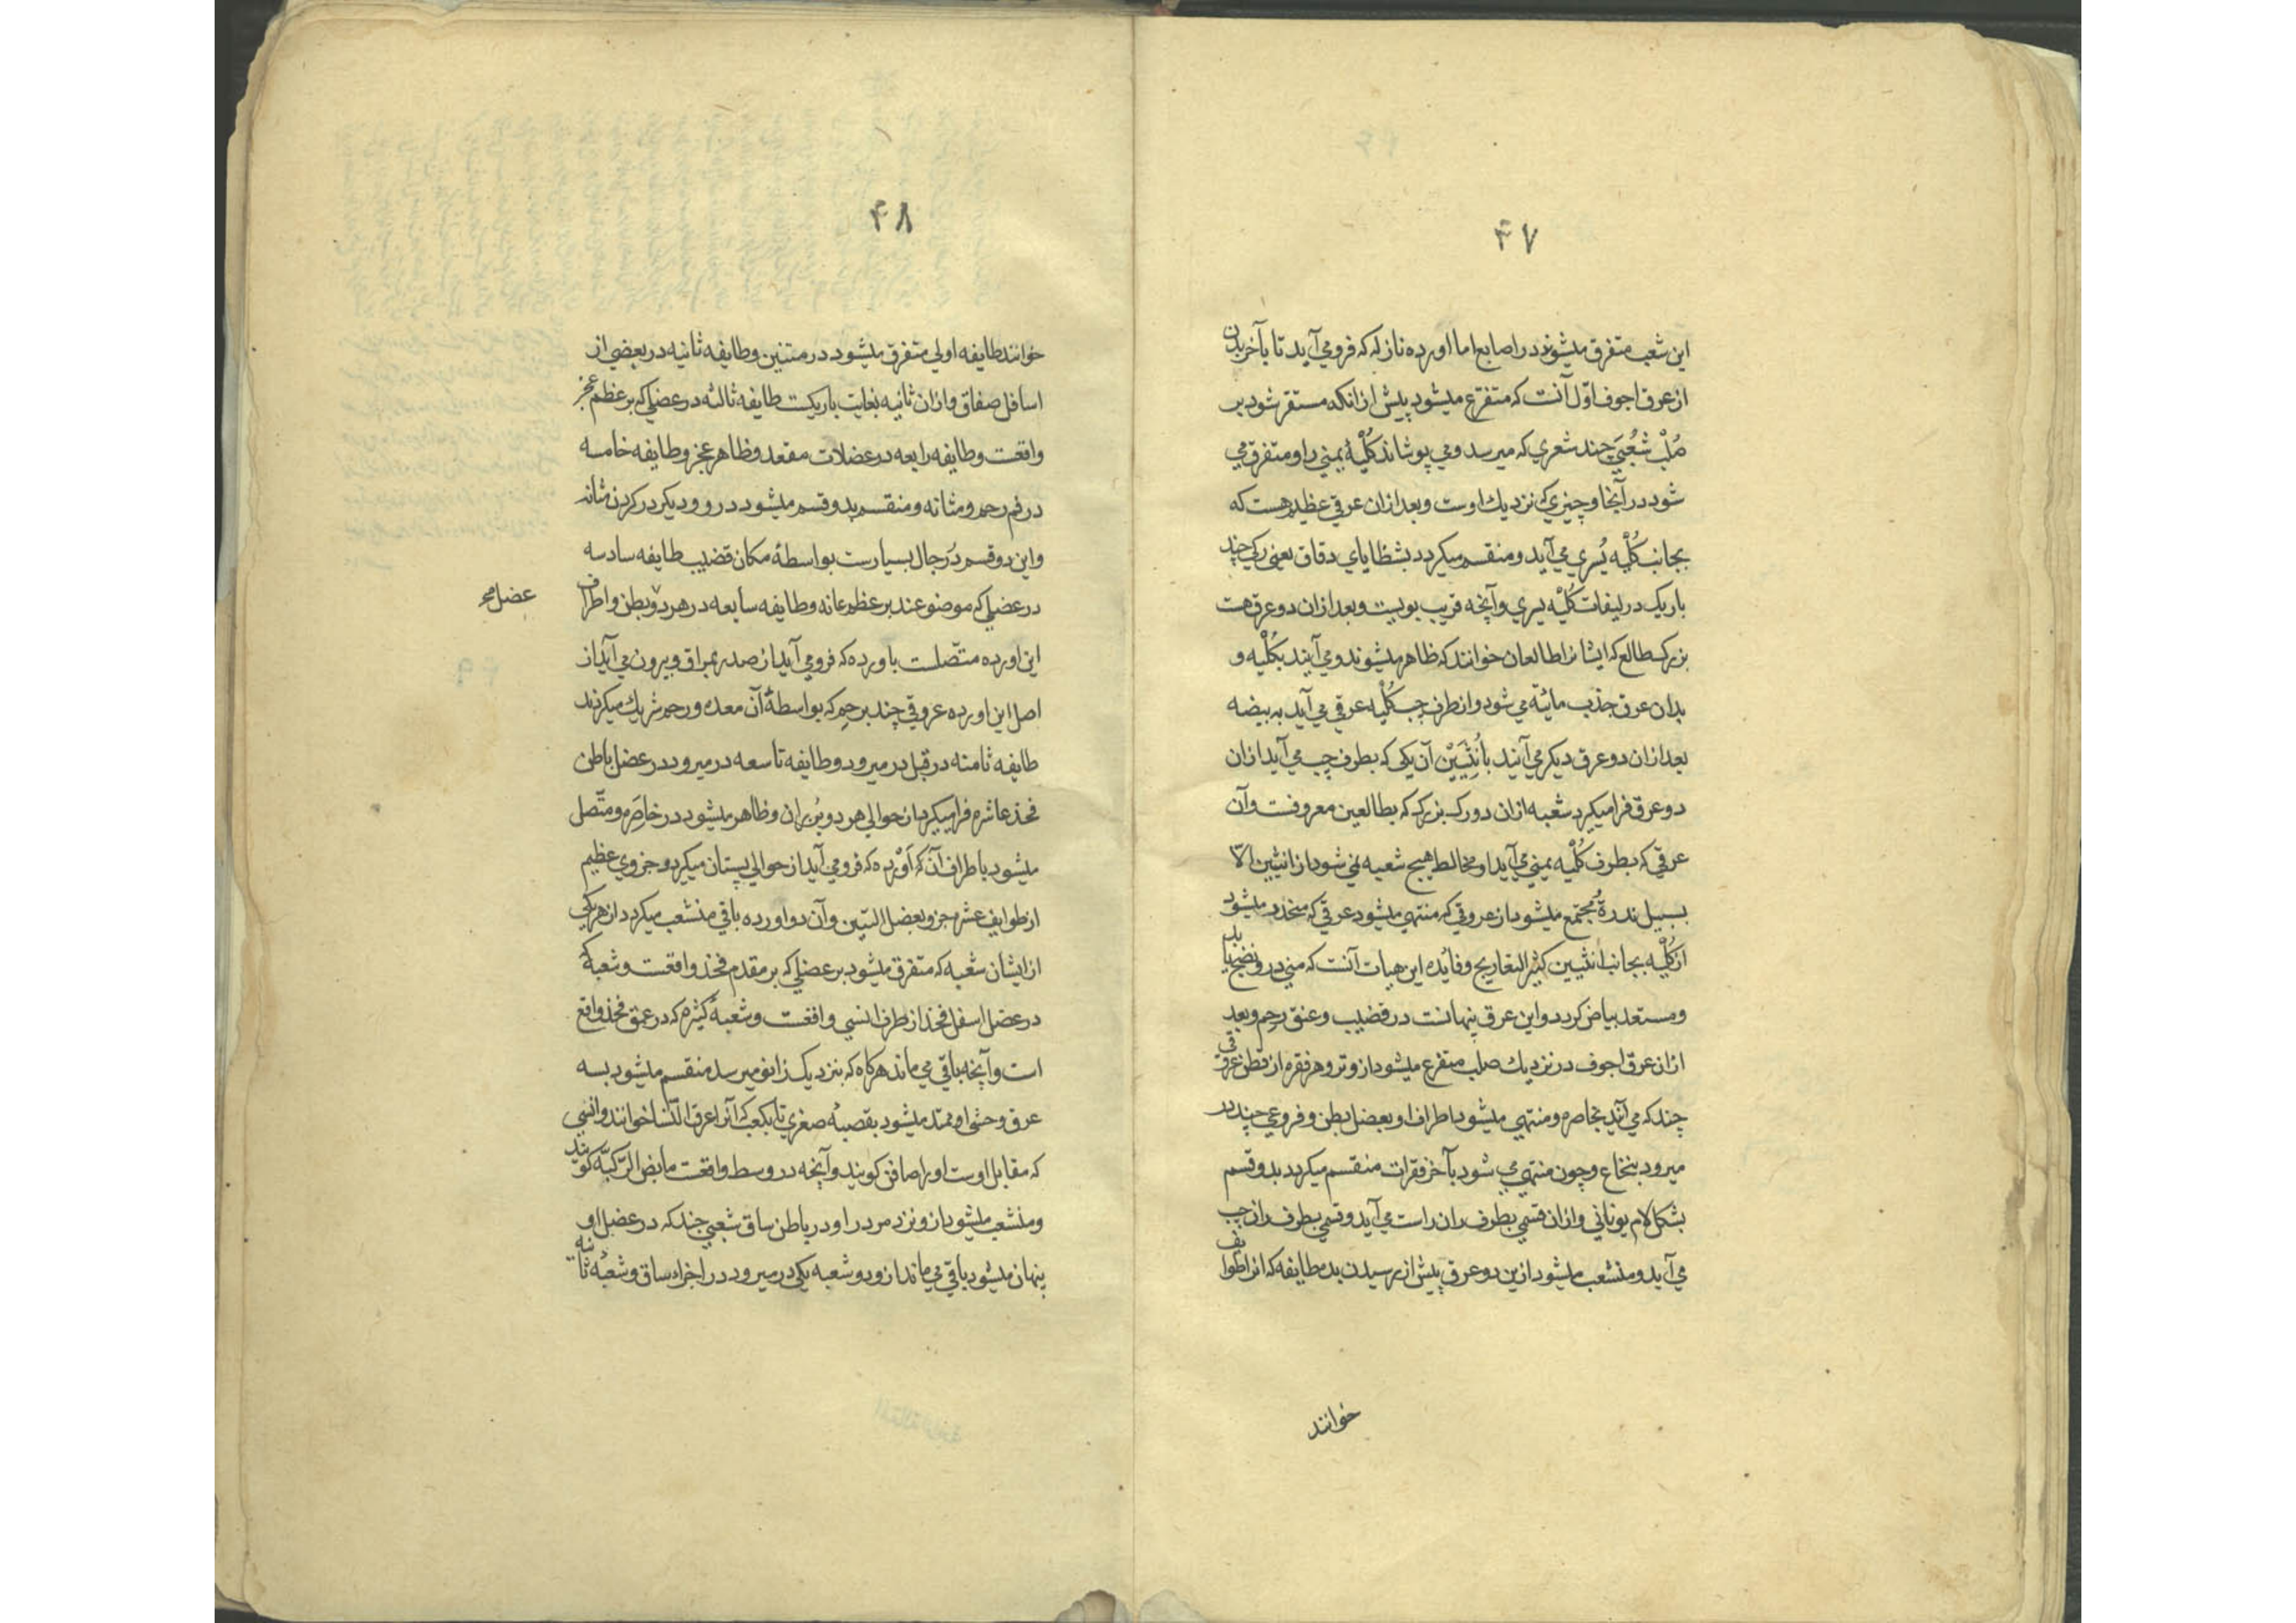 ۴۷
این شعب متفرق میشوند در اصابع اما اورده نازله که فرومی آید تا بآخر بدن
از عرق اجوف اوّل آنت که متفرع میشود پیش از انکه مستقر شود بر
صُلْب شُعْبَی چند شعری که میرسد ومی پوشاند کُلْیهٔ یمنی را ومتفرق می
شود در آنجا وچیزی که نزدیك اوست وبعد ازان عرقی عظیم هست که
بجانب کُلْیه یُسری می آید ومنقسم میکردد بشظایای دقاق یعنی رکی چند
باریک در لیفات کُلْیه یسری وآنچه قریب بویست وبعد ازان دو عرق هت
بزرک طالع که ایشانرا طالعان خوانند که ظاهر میشوند ومی آیند بکُلْیه و
بدان عرق جذب مائیّه می شود واز طرف چپ کُلْیه عرقی می آید به بیضه
بعد ازان دو عرق دیکر می آیند باُنثَیَیْن آن یکی که بطرف چپ می آید ازان
دو عرق فرا میکیرد شعبه ازان دو رک بزرک که بطالعین معروفت وآن
عرقی که بطرف کُلْیه یمنی می آید او مخالط هیچ شعبه نمی شود از انثیین الّا
بسبیل ندرة مُجتمع میشود از عروقی که منتهی میشود عرقی که منحدر میشود
از کُلْیه بجانب انثیین کثیر التعاریج وفائده این هیات آنت که منی درو نضج یابد
ومستعد بیاض کردد واین عرق پنهانت در قضیب وعنق رحم وبعد
ازان عرق اجوف در نزدیك صلب متفرع میشود ازو نزد هر فقره از قطن عروقی
چند که می آید بخاصره ومنتهی میشود اطراف او بعضل بطن وفروعی چند در
میرود بنخاع وچون منتهی می شود بآخر فقرات منقسم میکردد بدو قسم
بشکل لام یونانی وازان قسمی بطرف ران راست می آید وقسمی بطرف ران چپ
می آید ومنشعب میشود ازین دو عرق پیش از رسیدن بده طایفه که انرا طوایف
خوانند
۴۸
خوانند طایفه اولی متفرق میشود در متنین وطایفه ثانیه در بعضی از
اسافل صفاق وازان ثانیه بغایت باریکست طایفه ثالثه در عضلی که بر عظم عجز
واقعت وطایفه رابعه در عضلات مقعد وظاهر عجز وطایفه خامسه
در فم رحم ومثانه ومنقسم بدو قسم میشود در رو ودیکر در کردن مثانه
واین دو قسم دَر رجال بسیارست بواسطهٔ مکان قضیب طایفه سادسه
در عضلی که موضوعند بر عظم عانه وطایفه سابعه در هر دو بطن واطراف
عضل
این اورده متّصلت باورده که فرومی آید از صدر بمراق وبیرون می آید از
اصل این اورده عروقی چند برحم که بواسطهٔ آن معده ورحم شریك میکردند
طایفه ثامنه در قبل در میرود وطایفه تاسعه در میرود در عضل باطن
فخذ عاشره فرا میکیرد از حوالی هر دو بُن ران وظاهر میشود در خاصَره ومتّصل
میشود باطراف آن که اَوْرده که فرومی آید از حوالی پستان میکردد جزوی عظیم
از طوایف عشره جزو بعضل الیتین وآن دو اورده باقی منشعب میکردد از هر یکی
از ایشان شعبه که متفرق میشود بر عضلی که بر مقدم فخذ واقعت وشعبهٔ که
در عضل اسفل فخذ از طرف انسی واقعت وشعبهٔ کثیره که در عمق فخذ واقع
است وآنچه باقی می ماند هرکاه که بنزدیک زانو میرسد منقسم میشود بسه
عرق وحشی او ممتد میشود بقصبهٔ صغری تا بکعب که آنرا عرق النّسا خوانند وانسی
که مقابل اوست اورا صافن کویند وآنچه در وسط واقعت مابض الرّکبه کویند
ومنشعب میشود ازو نزد مردر او در باطن ساق شعبی چند که در عضل او
پنهان میشود باقی می ماند ازو دو شعبه یکی در میرود در اجزاء ساق وشعبهٔ ثانیه